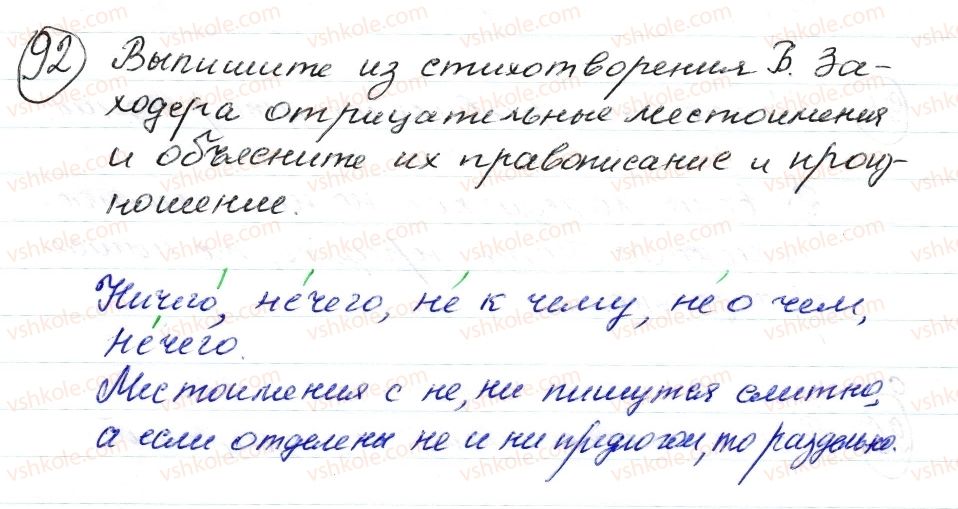 92 Выпишите из стихотворения В. За-
ходера отрицательные местоимения
и объясните их правописание и произ-
ношение.
Ничего́, не́чего, не́ к чему, не́ о чем,
не́чего.
Местоимения с не, ни пишутся слитно,
а если отделены не и ни предлогом, то раздельно.